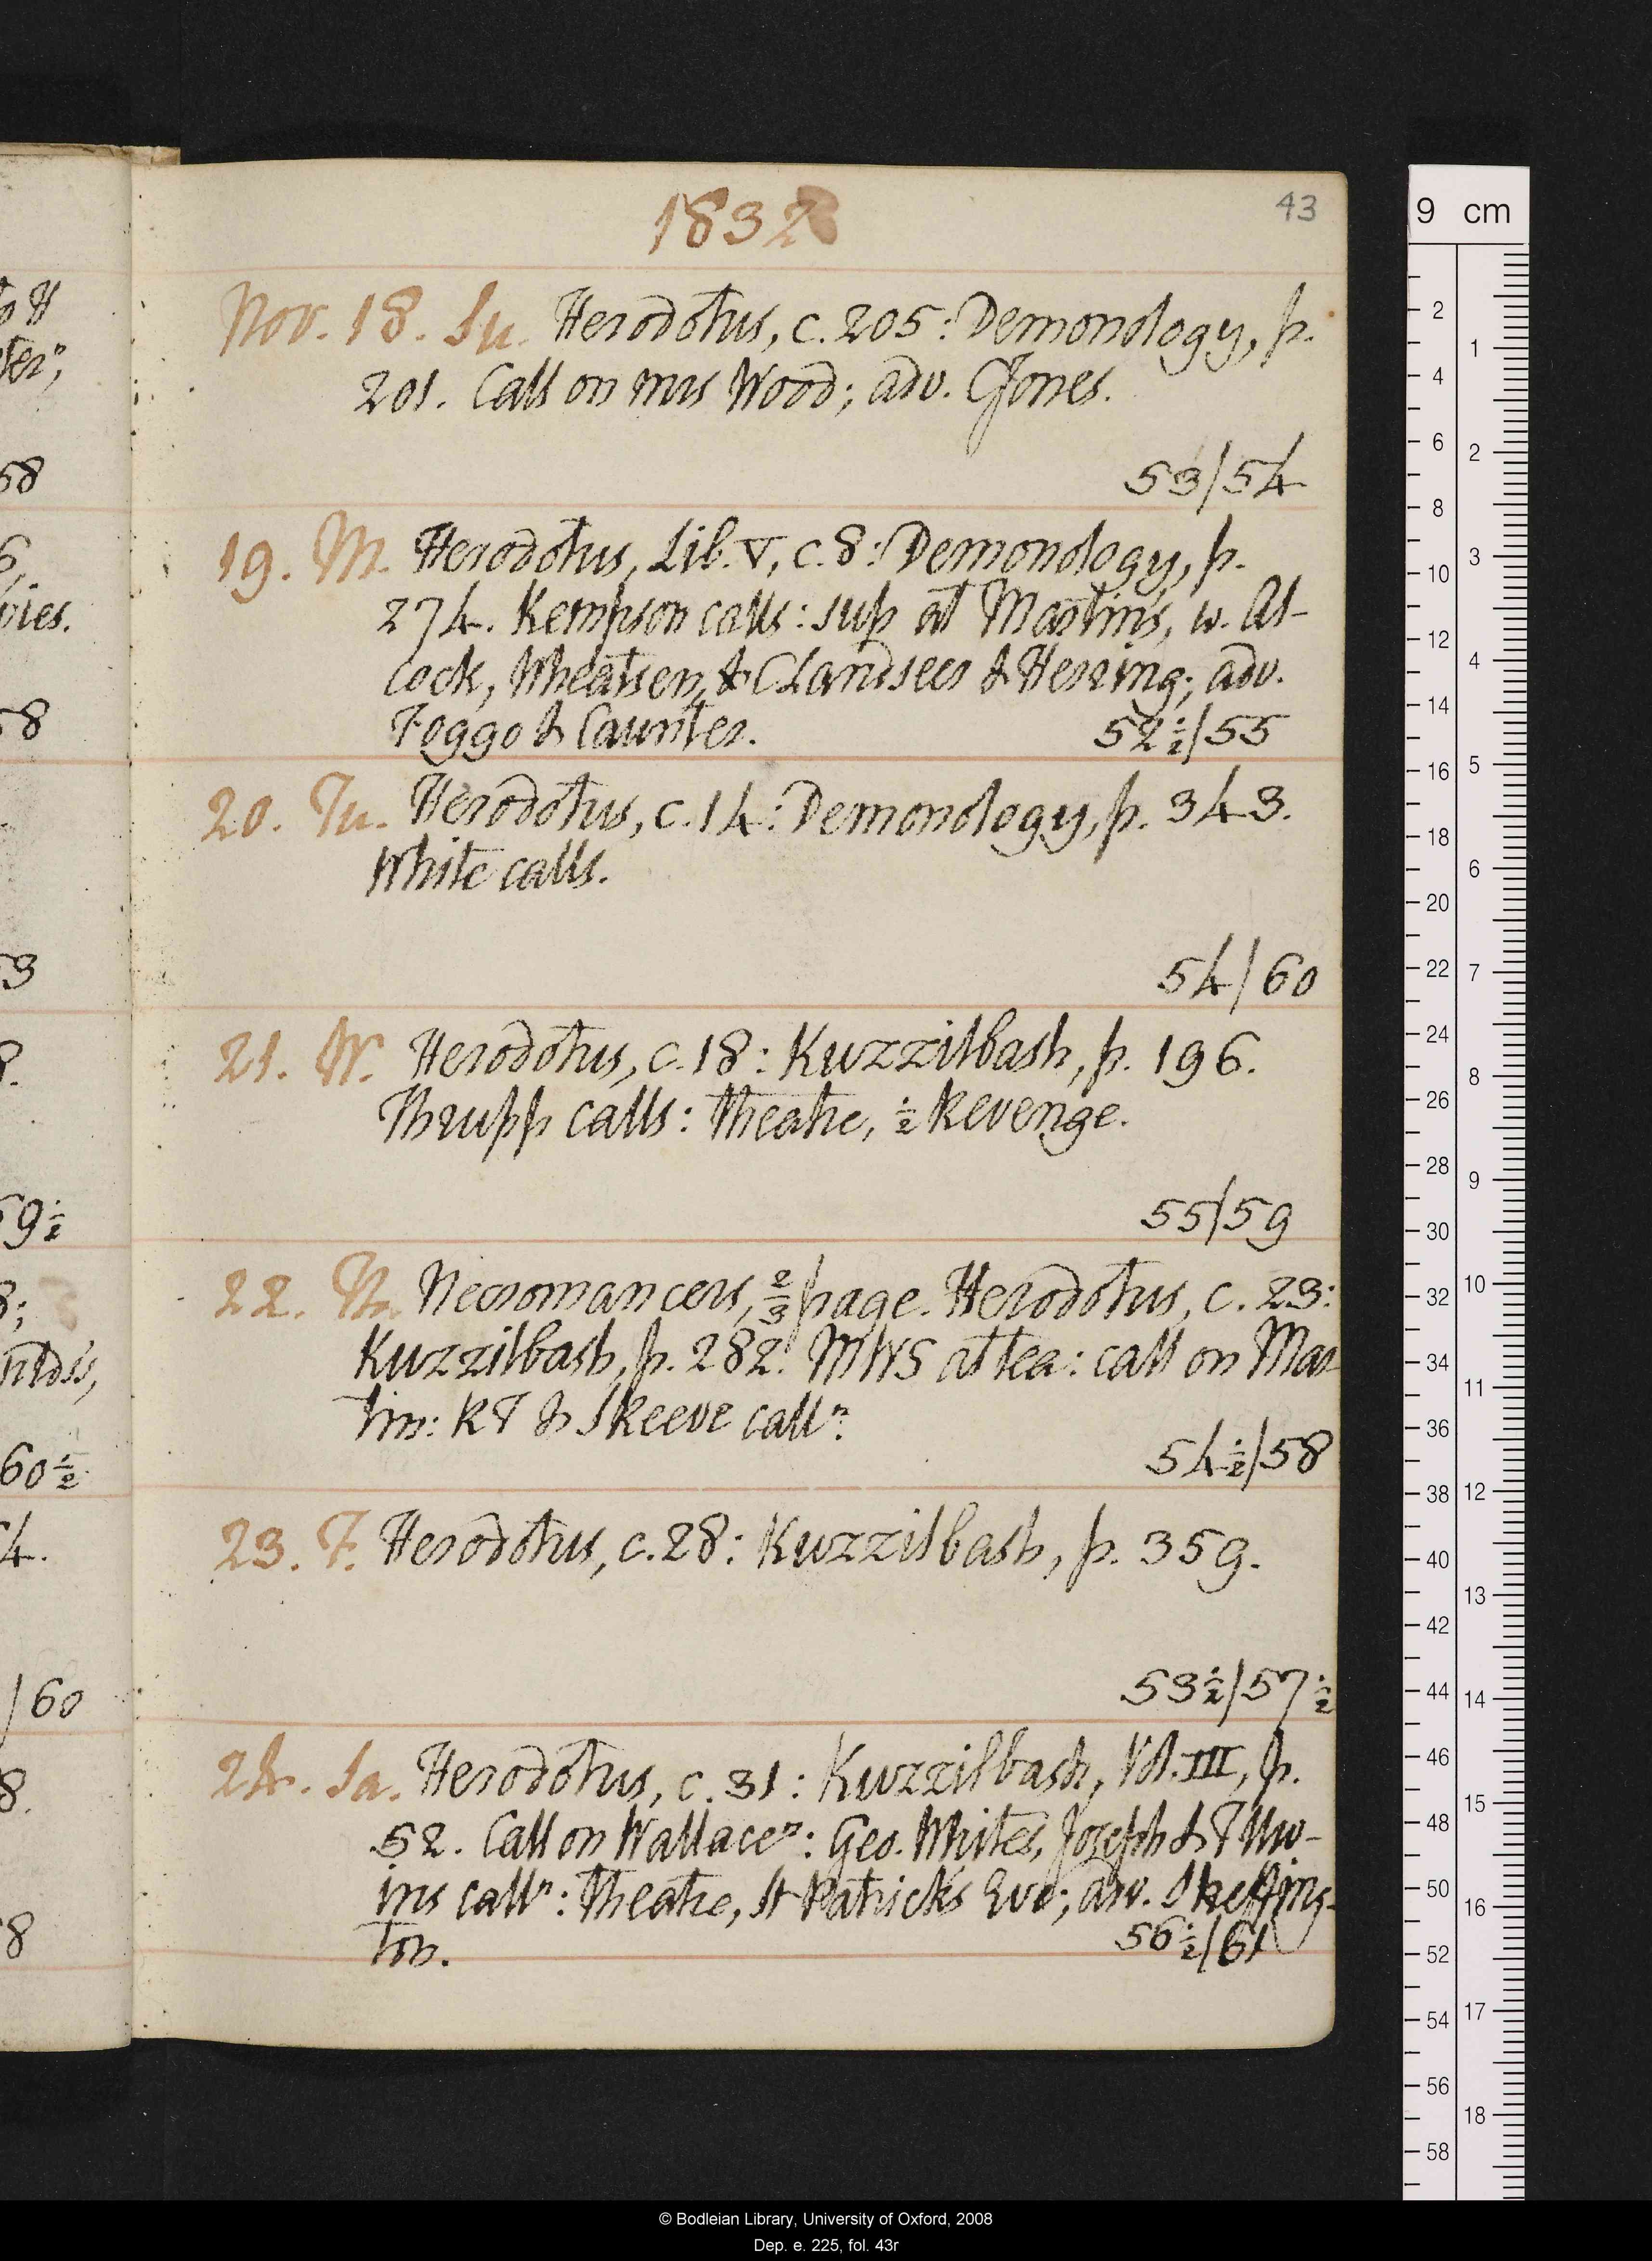 1832
43
Nov. 18. Su. Herodotus, c. 205: Demonology, p.
201. Call on mrs Wood; adv. CJones.
53/54
19. M. Herodotus, Lib. V, c. 8: Demonology, p.
274. Kempson calls: sup at Martin's, w. Al-
cock, Wheatsen, & CLandseer & Herring; adv.
Foggo & Caunter.
52½/55
20. Tu. Herodotus, c. 14: Demonology, p. 343.
White calls.
54/60
21. W. Herodotus, c. 18: Kuzzilbash, p. 196.
Thrupp calls: theatre, ½ Revenge.
55/59
22. Th. Necromancers, ⅔ page. Herodotus, c. 23:
Kuzzilbash, p. 282. MWS at tea: call on Mar-
tin: RT & Skeeve calln.
54½/58
23. F. Herodotus, c. 28: Kuzzilbash, p. 359.
53½/57½
24. Sa. Herodotus, c. 31: Kuzzilbash, Vol. III, p.
52. Call on Wallacen: Geo. White's, Joseph & T Uw-
ins calln: theatre, St Patrick's Eve; adv. Skeffing-
ton.
56½/61
9 cm
© Bodleian Library, University of Oxford, 2008
Dep. e. 225, fol. 43r